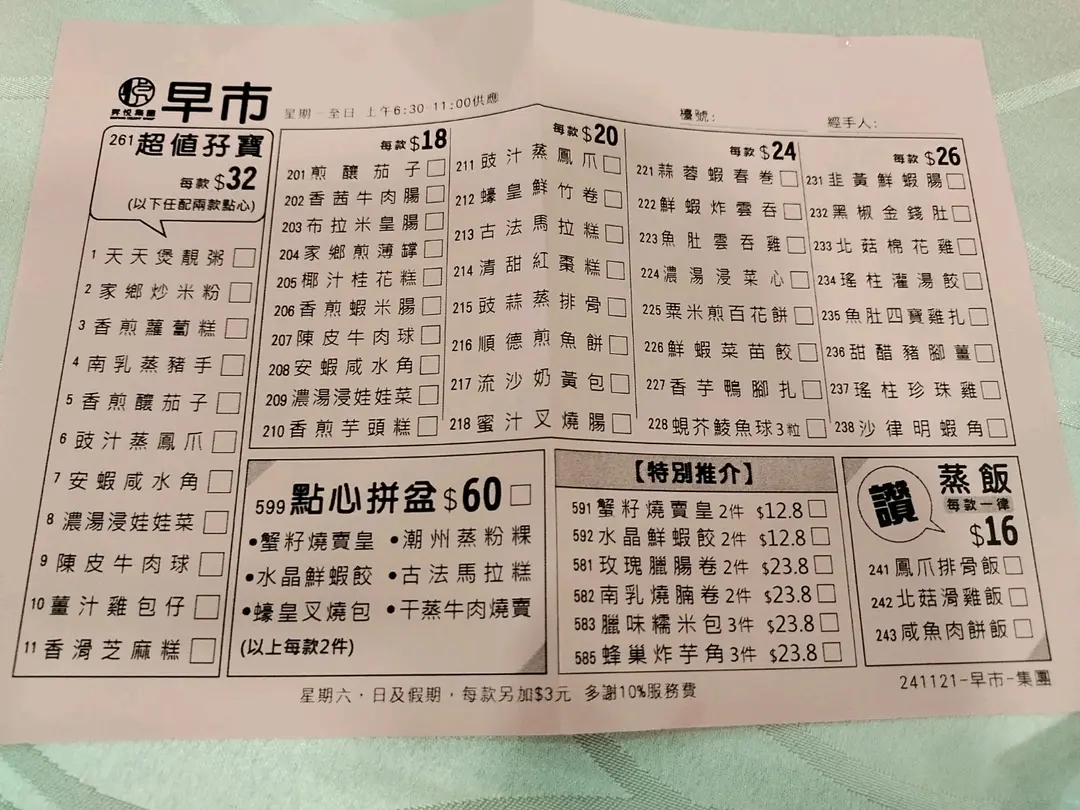 昇悅集團
早市 星期一至日 上午6:30-11:00供應 檯號： 經手人：
261超值孖寶
每款$32
(以下任配兩款點心)
1 天天煲靚粥
2 家鄉炒米粉
3 香煎蘿蔔糕
4 南乳蒸豬手
5 香煎釀茄子
6 豉汁蒸鳳爪
7 安蝦咸水角
8 濃湯浸娃娃菜
9 陳皮牛肉球
10 薑汁雞包仔
11 香滑芝麻糕
每款$18
201 煎釀茄子
202 香茜牛肉腸
203 布拉米皇腸
204 家鄉煎薄罉
205 椰汁桂花糕
206 香煎蝦米腸
207 陳皮牛肉球
208 安蝦咸水角
209 濃湯浸娃娃菜
210 香煎芋頭糕
每款$20
211 豉汁蒸鳳爪
212 蠔皇鮮竹卷
213 古法馬拉糕
214 清甜紅棗糕
215 豉蒜蒸排骨
216 順德煎魚餅
217 流沙奶黃包
218 蜜汁叉燒腸
每款$24
221 蒜蓉蝦春卷
222 鮮蝦炸雲吞
223 魚肚雲吞雞
224 濃湯浸菜心
225 粟米煎百花餅
226 鮮蝦菜苗餃
227 香芋鴨腳扎
228 蜆芥鯪魚球3粒
每款$26
231 韭黃鮮蝦腸
232 黑椒金錢肚
233 北菇棉花雞
234 瑤柱灌湯餃
235 魚肚四寶雞扎
236 甜醋豬腳薑
237 瑤柱珍珠雞
238 沙律明蝦角
599 點心拼盆$60
•蟹籽燒賣皇 •潮州蒸粉粿
•水晶鮮蝦餃 •古法馬拉糕
•蠔皇叉燒包 •干蒸牛肉燒賣
(以上每款2件)
【特別推介】
591 蟹籽燒賣皇2件 $12.8
592 水晶鮮蝦餃2件 $12.8
581 玫瑰臘腸卷2件 $23.8
582 南乳燒腩卷2件 $23.8
583 臘味糯米包3件 $23.8
585 蜂巢炸芋角3件 $23.8
讚 蒸飯
每款一律
$16
241 鳳爪排骨飯
242 北菇滑雞飯
243 咸魚肉餅飯
星期六，日及假期，每款另加$3元 多謝10%服務費
241121-早市-集團